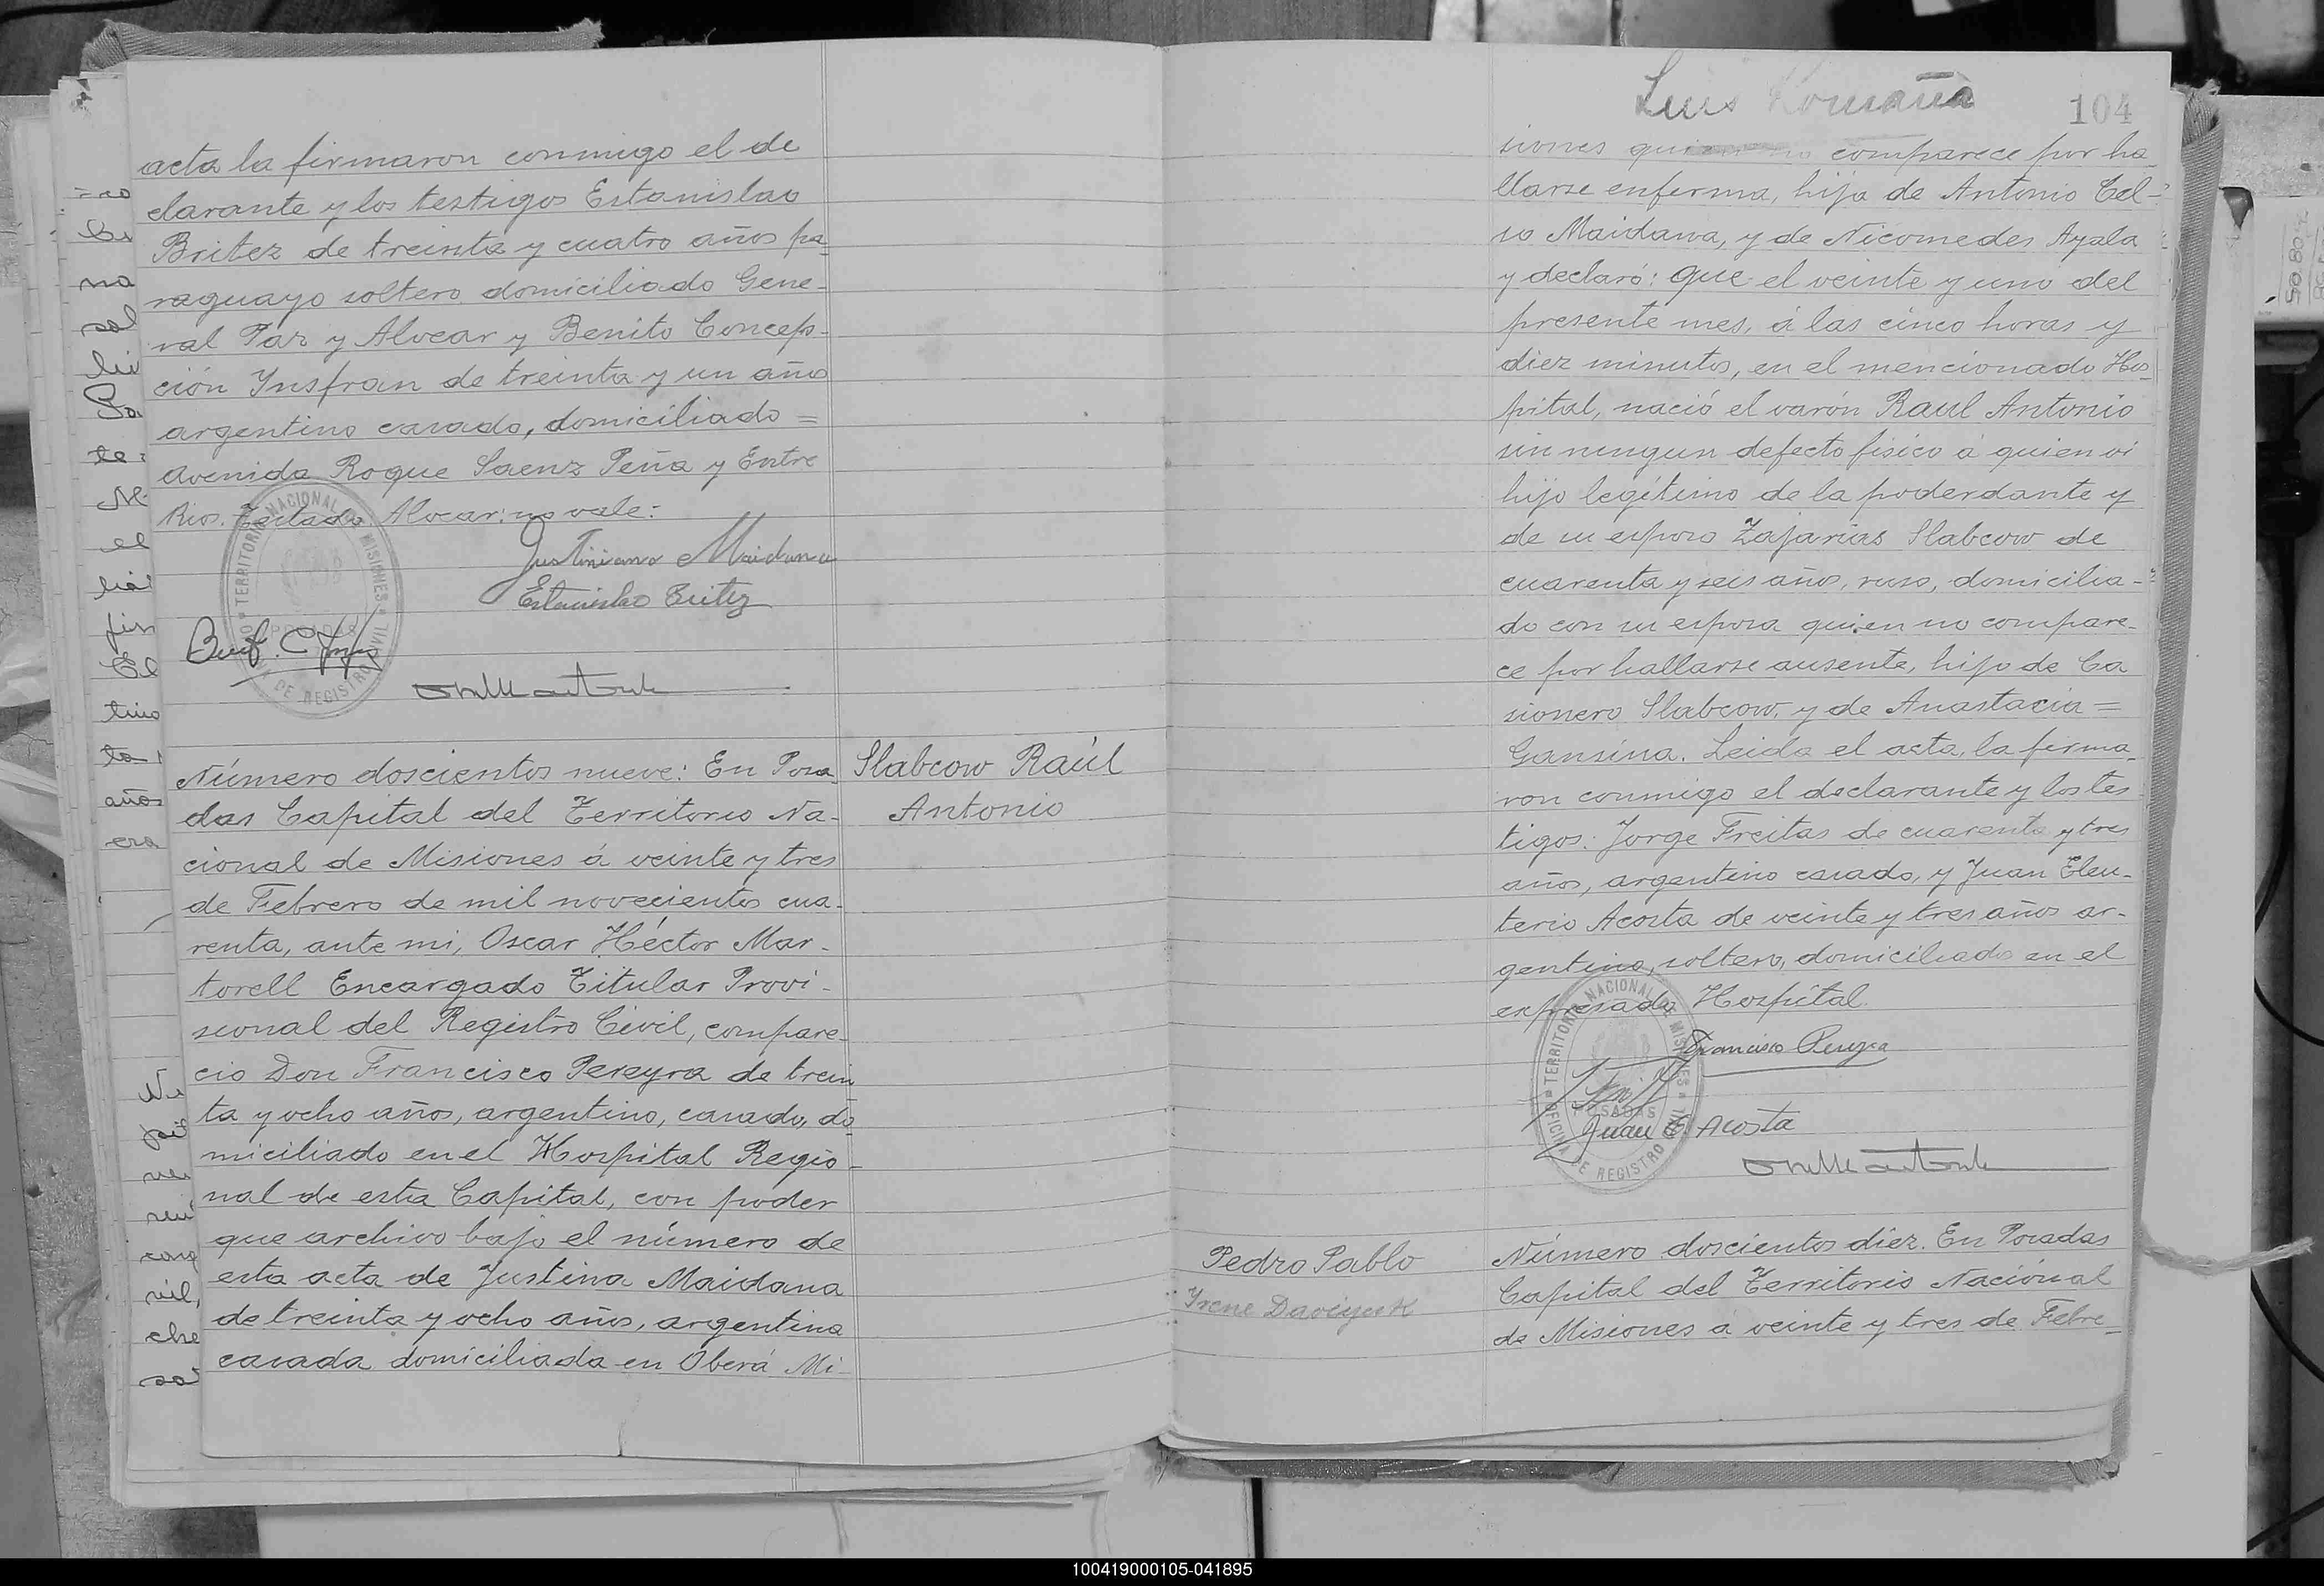 acta la firmaron conmigo el de
clarante y los testigos Estanislao
Britez de treinta y cuatro años pa-
raguayo soltero domiciliado Gene-
ral Paz y Alvear y Benito Concep-
ción Ynsfran de treinta y un años
argentino casado, domiciliado =
Avenida Roque Saenz Peña y Entre
Rios. Teclado Alvear: no vale:
Justiniano Maidana
Estanislao Britez
Benf. C.
TERRITORIO NACIONAL DE MISIONES
POSADAS
OFICINA DE REGISTRO CIVIL
Número doscientos nueve: En Posa-
das Capital del Territorio Na-
cional de Misiones á veinte y tres
de Febrero de mil novecientos cua-
renta, ante mi, Oscar Héctor Mar-
torell Encargado Titular Provi-
sional del Registro Civil, compare-
cio Don Francisco Pereyra de trein
ta y ocho años, argentino, casado, do-
miciliado en el Hospital Regio-
nal de esta Capital, con poder
que archivo bajo el número de
esta acta de Justina Maidana
de treinta y ocho años, argentina
casada domiciliada en Oberá Mi-
Slabcow Raúl
Antonio
Luis Romaña
104
siones quien no comparece por ha
llarse enferma, hija de Antonio Cel-
so Maidana, y de Nicomedes Ayala
y declaró: Que el veinte y uno del
presente mes, á las cinco horas y
diez minutos, en el mencionado Hos-
pital, nació el varón Raul Antonio
sin ningun defecto fisico á quien vi
hijo legítimo de la poderdante y
de su esposo Zajarias Slabcow de
cuarenta y seis años, ruso, domicilia-
do con su esposa quien no compare-
ce por hallarse ausente, hijo de Ca
sionero Slabcow, y de Anastacia =
Gansina. Leida el acta, la firma-
ron conmigo el declarante y los tes
tigos: Jorge Freitas de cuarenta y tres
años, argentino casado, y Juan Eleu-
terio Acosta de veinte y tres años ar-
gentino, soltero, domiciliado en el
expresado Hospital
Francisco Pereyra
Juan E Acosta
TERRITORIO NACIONAL DE MISIONES
POSADAS
OFICINA DE REGISTRO CIVIL
Pedro Pablo
Irene Daviyuk
Número doscientos diez. En Posadas
Capital del Territorio Nacional
de Misiones á veinte y tres de Febre-
100419000105-041895